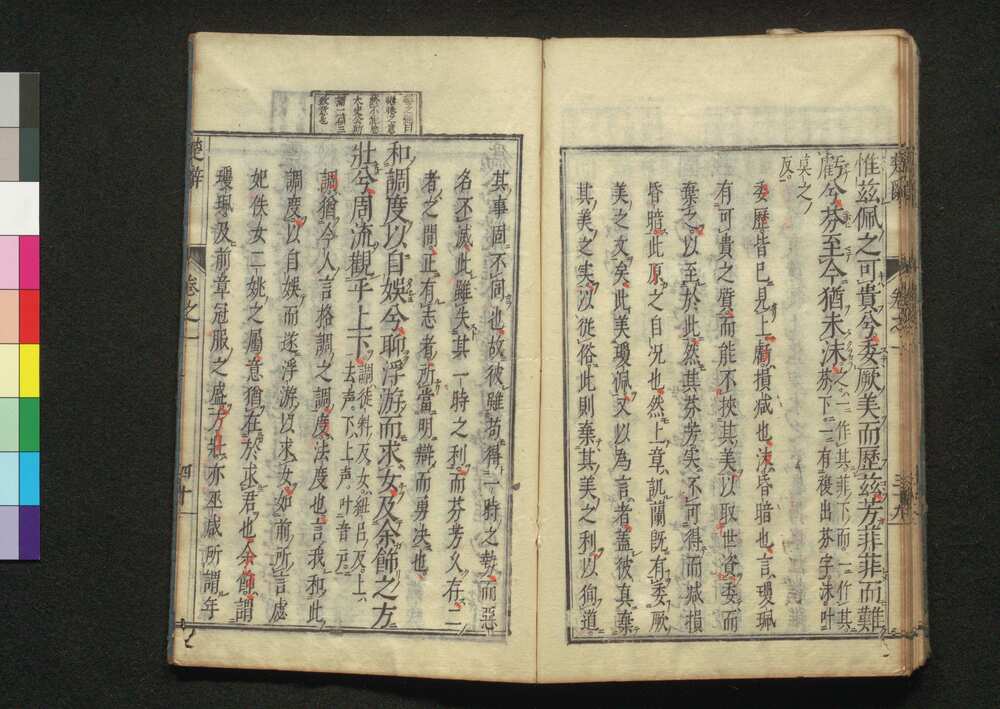 惟茲佩之可貴兮委厥美而歷茲芳菲菲而難
虧兮芬至今猶未沬之一作其菲下而一作其芬下一有複出芬字沬叶
莫之反
委歷皆已見上虧損减也沬昏暗也言瓊珮
有可貴之質而能不挾其美以取世資委而
棄之以至於此然其芬芳実不可得而减損
昏暗此原之自况也然上章譏蘭既有委厥
美之文矣此美瓊佩又以為言者蓋彼真棄
其美之実以從俗此則棄其美之利以狥道
其事固不同也故彼雖苟得一時之勢而惡
名不滅此雖失其一時之利而芬芳久存二
者之間正有志者所當明辯而勇決也
和調度以自娛兮聊浮游而求女及余飾之方
壯兮周流觀乎上下調徒料反女紐呂反上上去声下上声叶音戸
調猶今人言格調之調度法度也言我和此
調度以自娛而遂浮游以求女如前所言虙
妃佚女二姚之屬意猶在於求君也余飾謂
瓊珮及前章冠服之盛方壯亦巫咸所謂年
楚辭
卷之一
四十